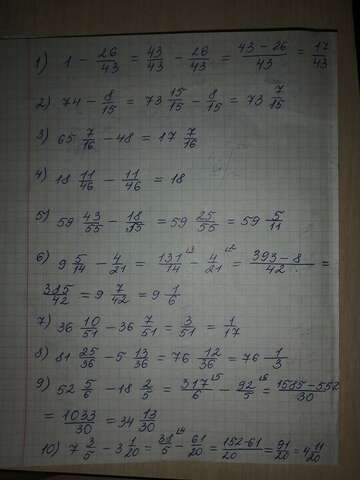 1) 1 - 26/43 = 43/43 - 26/43 = (43 - 26)/43 = 17/43
2) 74 - 8/15 = 73 15/15 - 8/15 = 73 7/15
3) 65 7/16 - 48 = 17 7/16
4) 18 11/46 - 11/46 = 18
5) 59 43/55 - 18/55 = 59 25/55 = 59 5/11
6) 9 5/14 - 4/21 = 131/14 - 4/21 = (393 - 8)/42 =
385/42 = 9 7/42 = 9 1/6
7) 36 10/51 - 36 7/51 = 3/51 = 1/17
8) 81 25/36 - 5 13/36 = 76 12/36 = 76 1/3
9) 52 5/6 - 18 2/5 = 317/6 - 92/5 = (1585 - 552)/30
= 1033/30 = 34 13/30
10) 7 3/5 - 3 1/20 = 38/5 - 61/20 = (152 - 61)/20 = 91/20 = 4 11/20